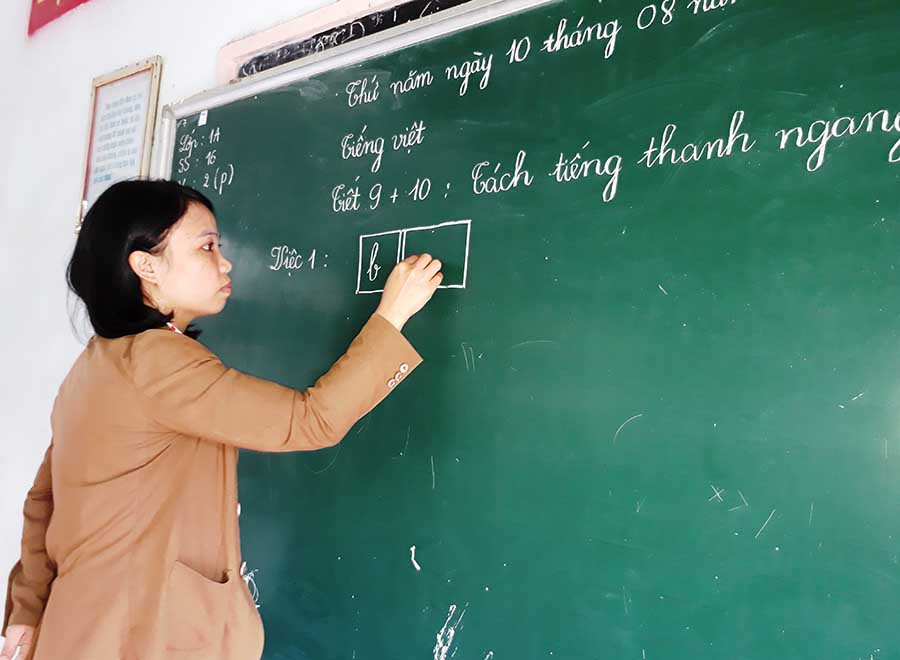 Thứ năm ngày 10 tháng 08 năm
Lớp: 1A
SS: 16
: 2 (p)
Tiếng việt
Tiết 9 + 10: Tách tiếng thanh ngang
Việc 1:
b